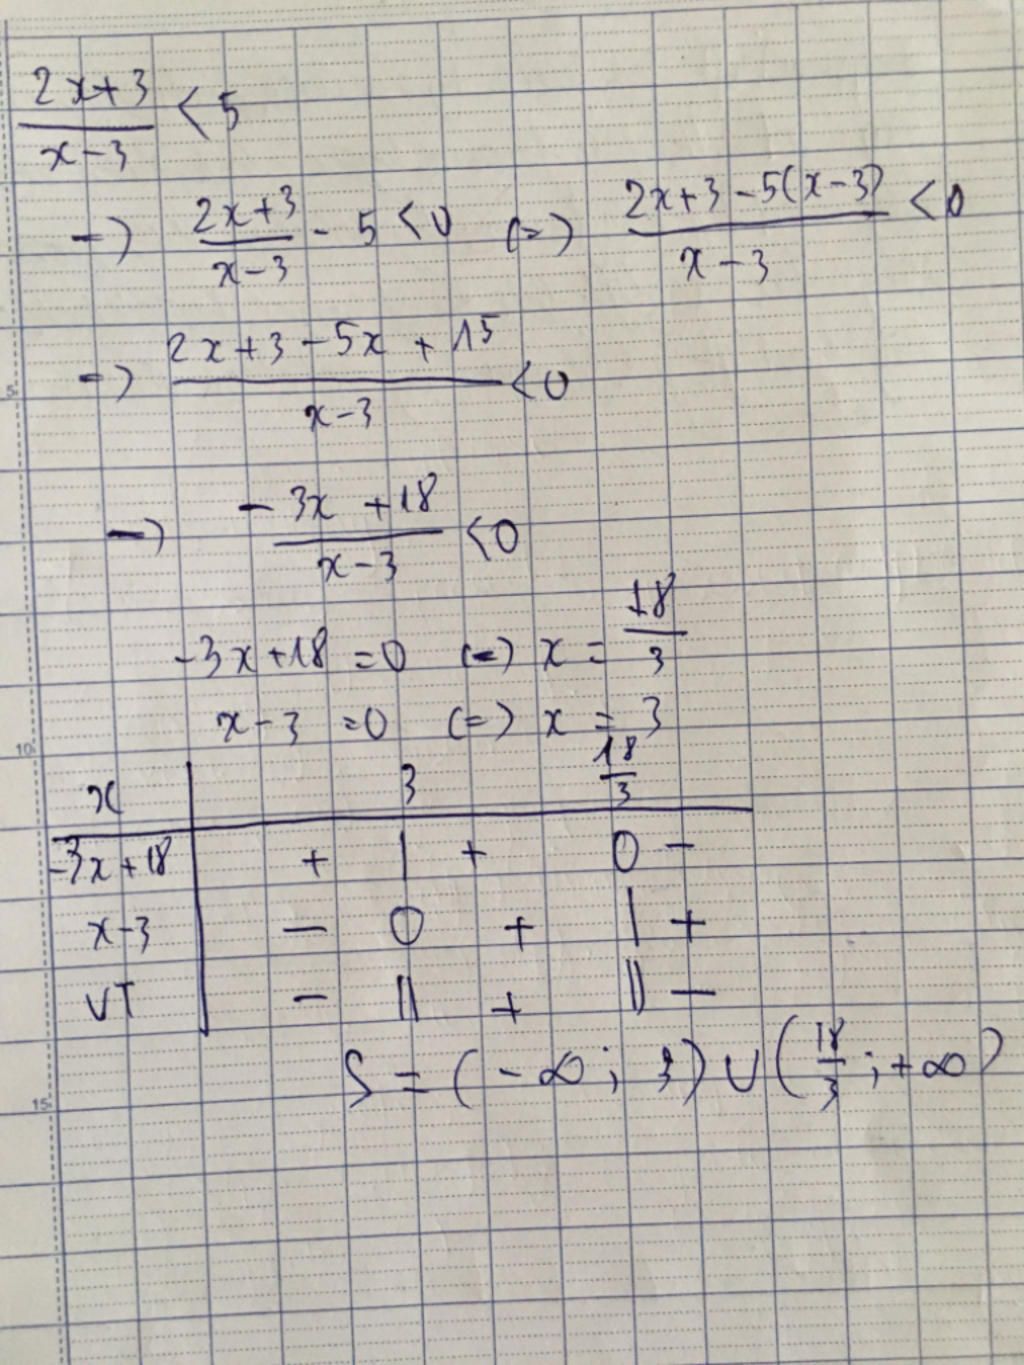 (2x+3)/(x-3) < 5
=) (2x+3)/(x-3) - 5 < 0 (=) (2x+3-5(x-3))/(x-3) < 0
=) (2x+3-5x+15)/(x-3) < 0
=) (-3x+18)/(x-3) < 0
-3x+18 = 0 (=) x = 18/3
x-3 = 0 (=) x = 3
x | 3 18/3
-3x+18 | + | + 0 -
x-3 | - 0 + | +
VT | - || + || -
S = (-∞; 3) ∪ (18/3; +∞)
5
10
15